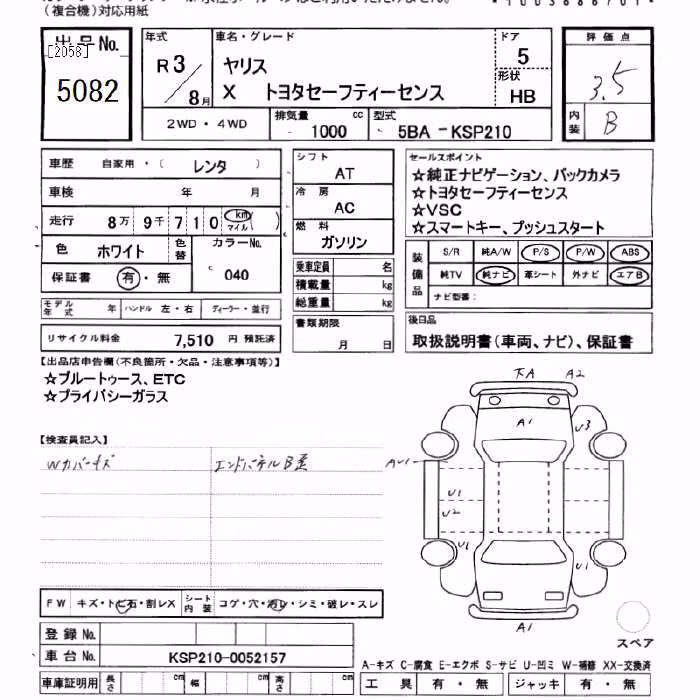 (複合機)対応用紙
出品No.
[2058]
5082
年式
R3/8月
車名・グレード
ヤリス
X トヨタセーフティーセンス
ドア
5
形状
HB
2WD・4WD
排気量 cc
1000
型式
5BA－KSP210
評価点
3.5
内装
B
車歴 自家用・( レンタ )
車検 年 月
走行 8万9千710 km マイル( )
色 ホワイト
色替
カラーNo.
c 040
保証書 有・無
モデル年式 年
ハンドル 左・右
ディーラー・並行
リサイクル料金 7,510 円 預託済
シフト
AT
冷房
AC
燃料
ガソリン
乗車定員 名
積載量 kg
総重量 kg
書類期限
月 日
セールスポイント
☆純正ナビゲーション、バックカメラ
☆トヨタセーフティーセンス
☆VSC
☆スマートキー、プッシュスタート
装備品
S/R 純A/W P/S P/W ABS
純TV 純ナビ 革シート 外ナビ エアB
ナビ型番:
後日品
取扱説明書(車両、ナビ)、保証書
【出品店申告欄(不良箇所・欠品・注意事項等)】
☆ブルートゥース、ETC
☆プライバシーガラス
【検査員記入】
Wカバーキズ
エンドパネルB歪
下A A2
A1
U3
AU1
U1
U2
U1
U1
A1
スペア
FW キズ・トビ石・割レX
シート内装 コゲ・穴・汚レ・シミ・破レ・スレ
登録No.
車台No. KSP210-0052157
車庫証明用 長さ cm 幅 cm 高さ cm
A-キズ C-腐食 E-エクボ S-サビ U-凹ミ W-補修 XX-交換済
工具 有・無 ジャッキ 有・無